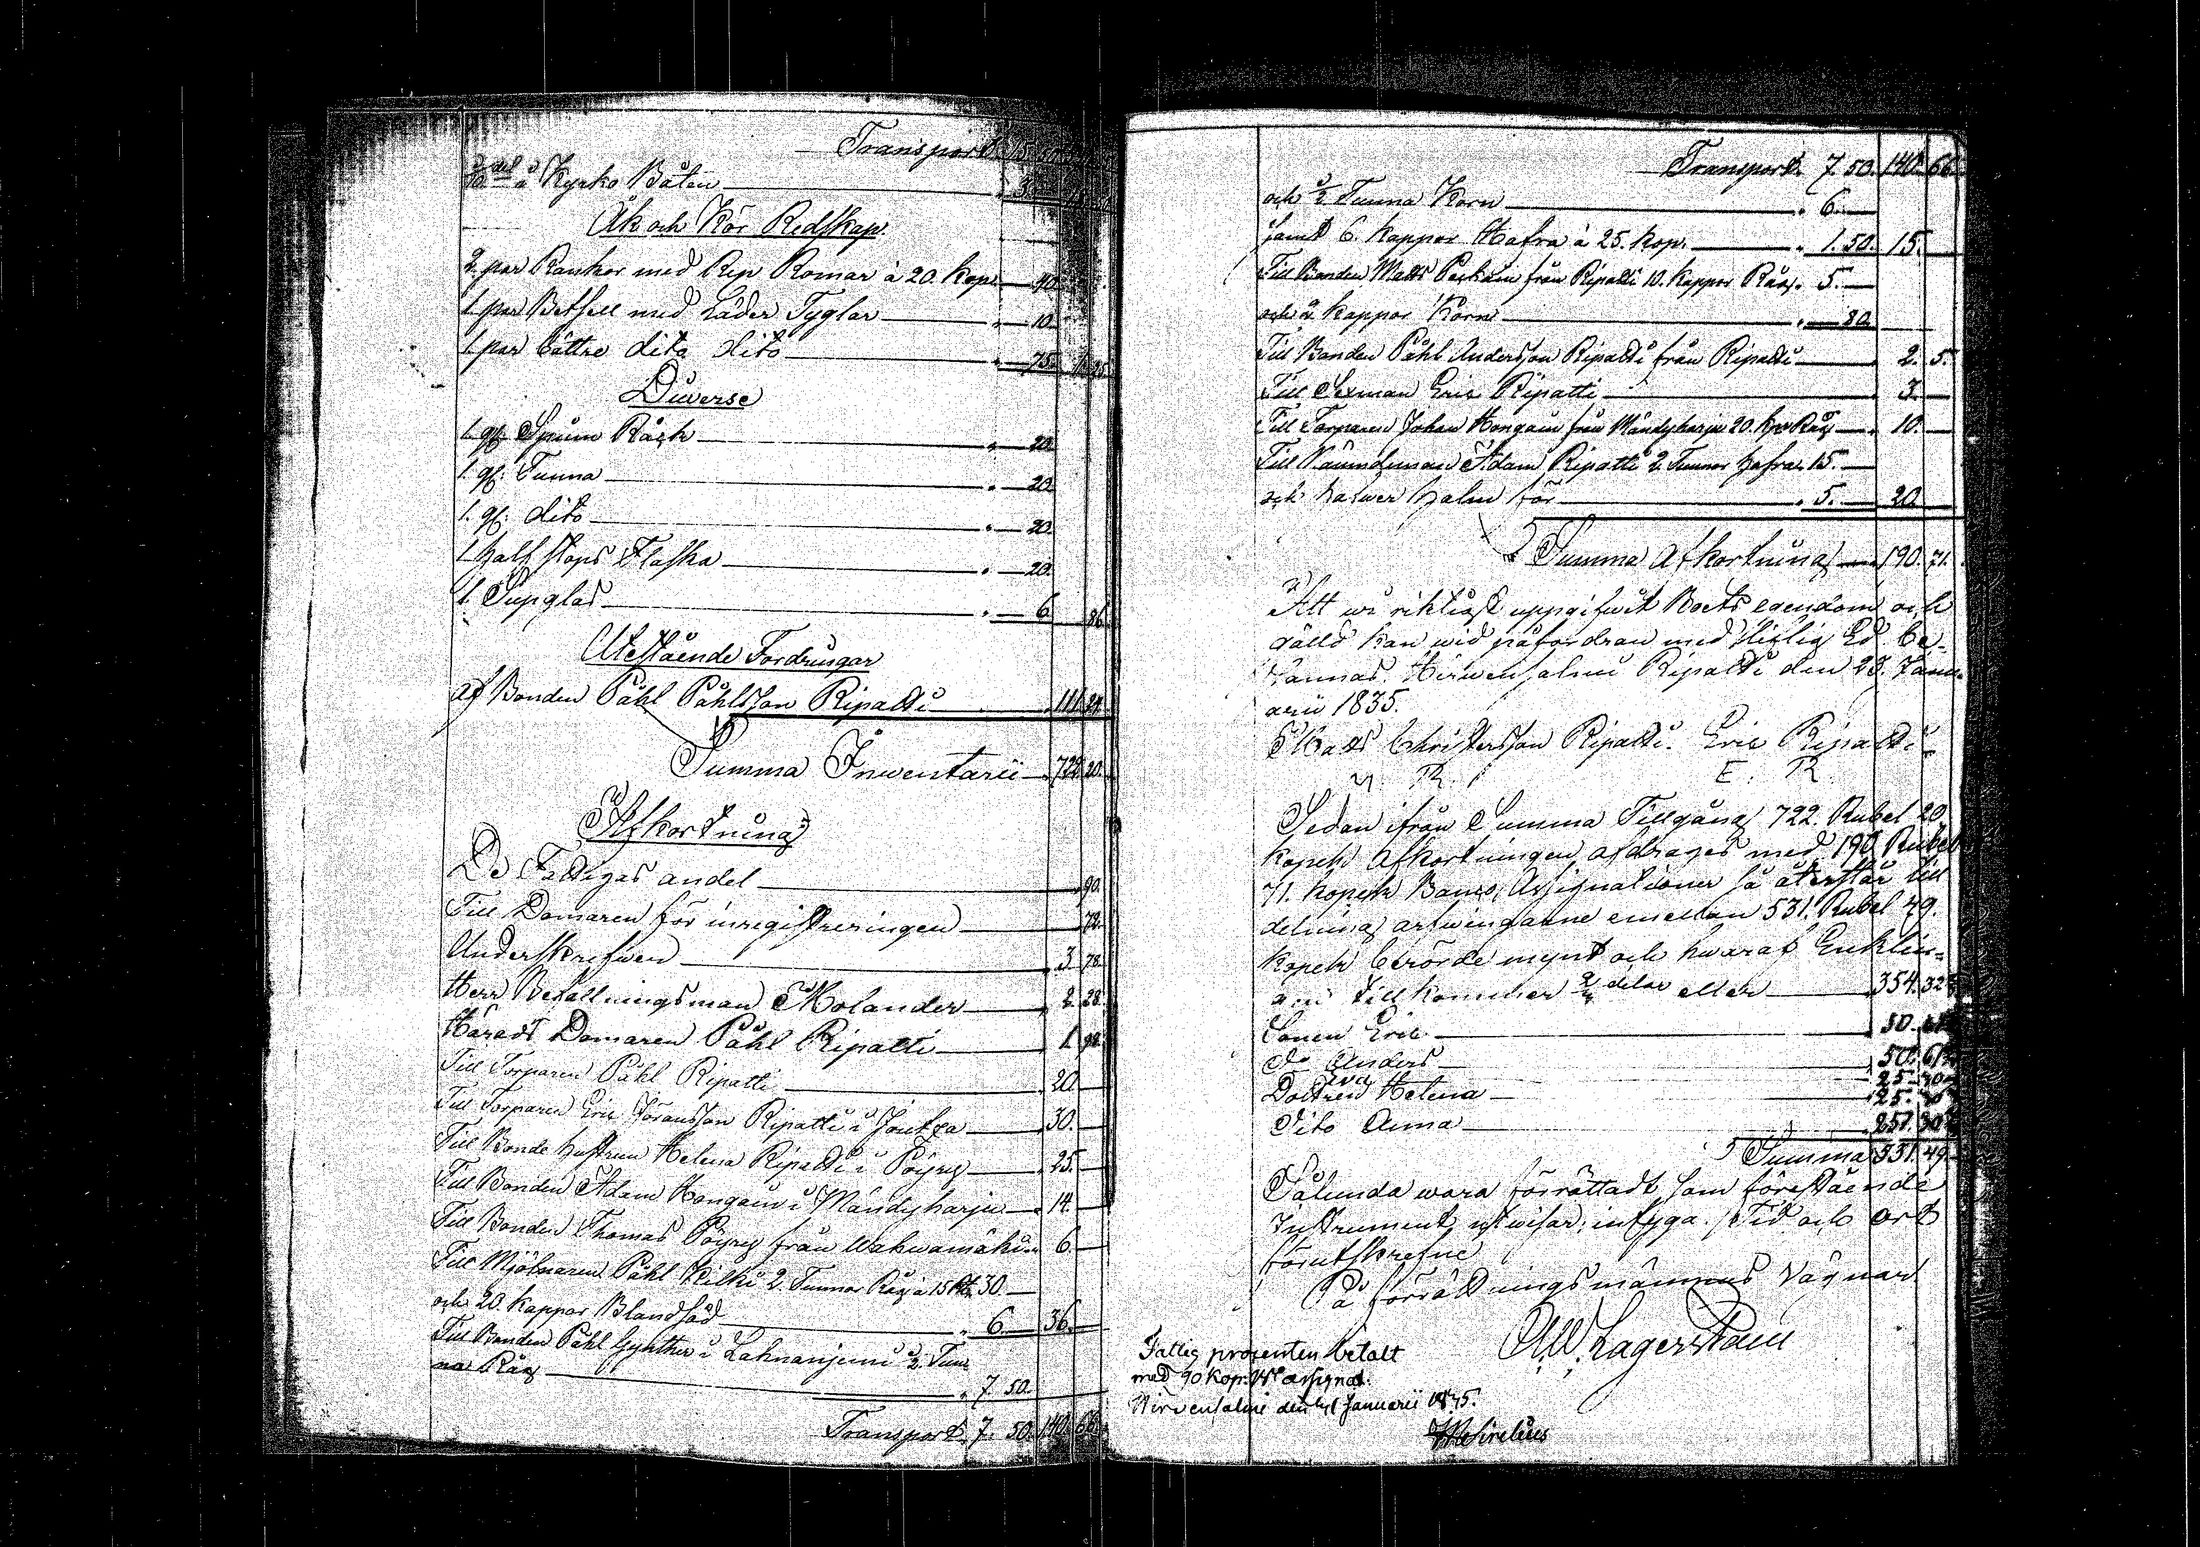 Transport 15
3/10 del i Kyrko Båten 3
Åk och Kör Redskap
2. par Rankor med Rep Romar à 20. kop. 40.
1. par Betsell med Läder Tyglar 10.
1. par bättre dito dito 75. 1. 25.
Diverse
1. gl: Spinn Råck 20.
1. gl: Tunna 20.
1. gl: dito 20.
1. half stops Flaska 20.
1. Supglas 6. 86.
Utestående Fordringar
af Bonden Påhl Påhlsson Ripatti 111. 24.
Summa Inwentarii 722. 20.
Afkortning
De Fattigas andel 90.
Till Domaren för inregistreringen 72.
Underskrifwen 3. 78.
Herr Befallningsman Molander 2. 28.
Härads Domaren Påhl Ripatti 1. 98.
Till Torparen Påhl Ripatti 20.
Till Torparen Eric Göransson Ripatti i 30.
Till Bonde hustrun Helena Ripatti i Pöyry 25.
Till Bonden Adam Hongain i Mändyharju 14.
Till Bonden Thomas Pöyry från Wahwamäki 6.
Till Mjölnaren Påhl Hilki 2. Tunnor Råg à 15 30.
och 20. kappar Blandsäd 6. 36.
Till Bonden Påhl i Lahnaniemi 1/2 Tun-
na Råg 7. 50.
Transport 7. 50. 140. 66.
Transport 7. 50. 140. 66.
och 1/2 Tunna Korn 6.
samt 6. kappar Hafra à 25. kop. 1. 50. 15.
Till Bonden Matts från Ripatti 10. kappar Råg 5.
och 2 kappar Korn 80.
Till Bonden Påhl Andersson Ripatti från Ripatti 2. 5.
Till Sexman Eric Ripatti 3.
Till Torparen Johan Hongain från Mändyharju 20. kpr Råg 10.
Till Nämdeman Adam Ripatti 2. Tunnor hafra 15.
och halm för 5. 20.
Summa Afkortning 190. 71.
Att wi riktigt uppgifwit Boets egendom och
gäld kan wid påfordran med liflig Ed be-
kännas. Hirwensalmi Ripatti den 23. Janu-
arii 1835.
Matts Christersson Ripatti. Eric Ripatti
M. R. E. R.
Sedan ifrån Summa Tillgång 722. Rubel 20
kopek Afkortningen afdrages med 190 Rubel
71. kopek Banco Assignationer så återstår till
delning arfwingarne emellan 531. Rubel 49.
kopek berörde mynt och hwaraf Enklin-
gen tillkommer 2/3 delar eller 354. 32
Sonen Eric 50. 61
Do Anders 50. 61
Dottren Helena 25. 30
Eva 25. 30
Dito Anna 25. 30
Summa 531. 49
Sålunda wara förrättadt som förestående
Instrument utwisar, intyga. Tid och ort
förutskrefne
På förrättningsmännens wägnar
Fattig procenten betalt
med 90 kop. assignat.
Hirvensalmi den Januarii